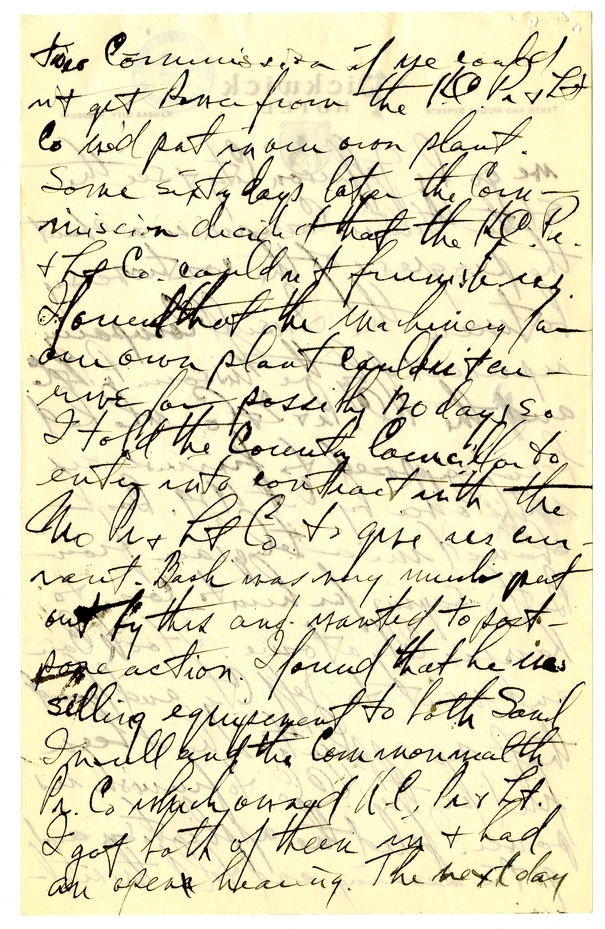 two Commission if we could
not get Power from the K.C. Pr & Lt
Co we'd put in our own plant.
Some sixty days later the Com-
mission decided that the K.C. Pr.
& Lt Co. couldn't furnish us.
I found that the machinery for
our own plant couldn't er-
rive for possibly 120 days, so
I told the County Councillor to
enter into contract with the
Mo Pr & Lt Co. to give us cur-
rant. Bash was very much put
out by this and wanted to post-
pone action. I found that he was
selling equipment to both
Insull and the Commonwealth
Pr. Co which owned K.C. Pr & Lt.
I got both of them in & had
an open hearing. The next day
Pickwick
HOTEL